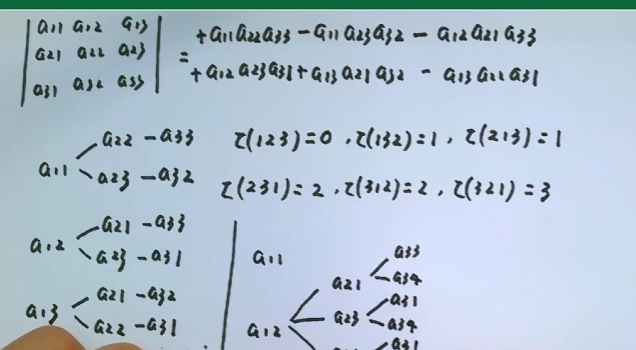 | a11 a12 a13 |
| a21 a22 a23 | =
| a31 a32 a33 |
+a11a22a33 - a11a23a32 - a12a21a33
+a12a23a31 + a13a21a32 - a13a22a31
a11
a22 - a33
a23 - a32
τ(123)=0, τ(132)=1, τ(213)=1
τ(231)=2, τ(312)=2, τ(321)=3
a12
a21 - a33
a23 - a31
a13
a21 - a32
a22 - a31
a11
a12
a21
a33
a34
a23
a31
a34
a31